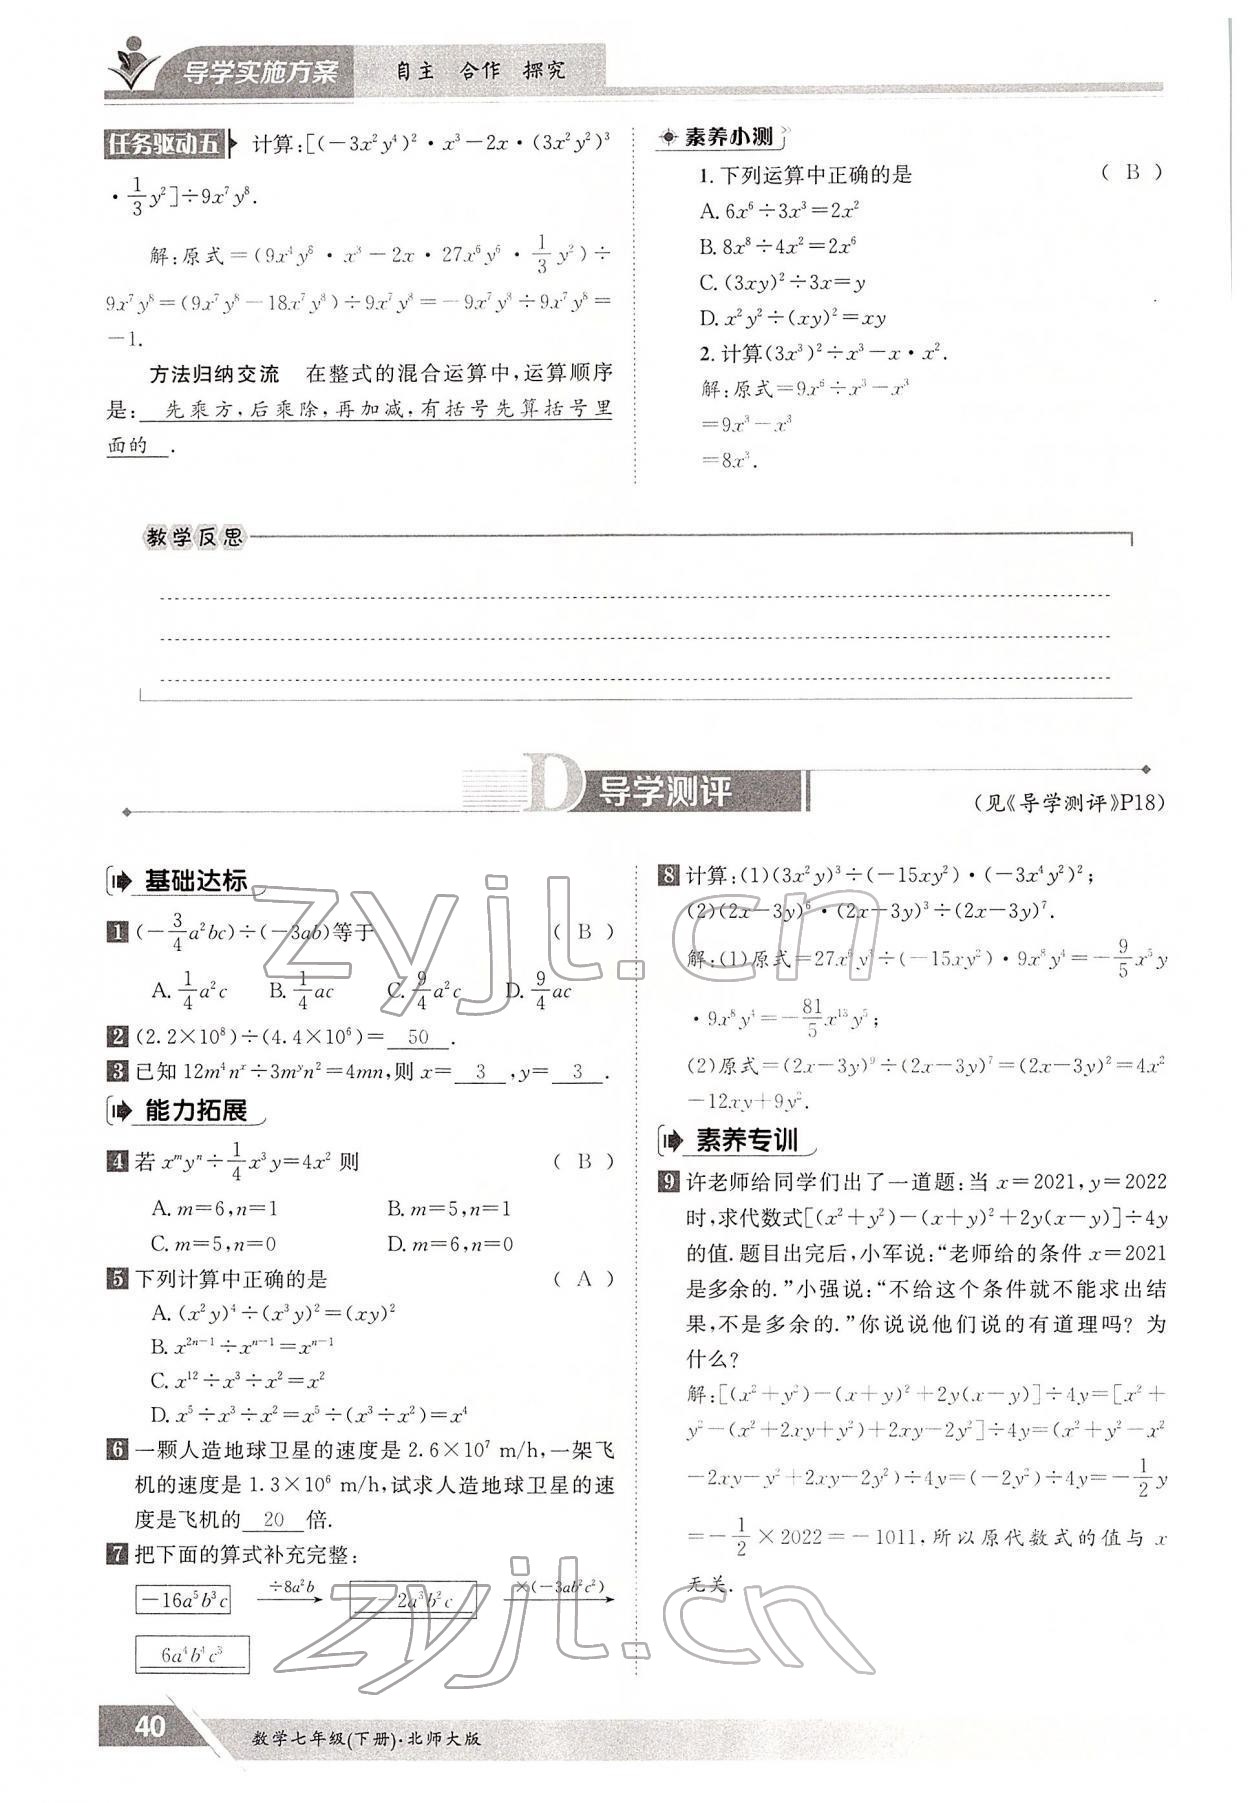 导学实施方案 自主 合作 探究
任务驱动五 计算:[(-3x²y⁴)²·x³-2x·(3x²y²)³
·1/3y²]÷9x⁷y⁸.
解:原式=(9x⁴y⁸·x³-2x·27x⁶y⁶·1/3y²)÷
9x⁷y⁸=(9x⁷y⁸-18x⁷y⁸)÷9x⁷y⁸=-9x⁷y⁸÷9x⁷y⁸=
-1.
方法归纳交流 在整式的混合运算中,运算顺序
是: 先乘方,后乘除,再加减,有括号先算括号里
面的 .
素养小测
1.下列运算中正确的是 ( B )
A.6x⁶÷3x³=2x²
B.8x⁸÷4x²=2x⁶
C.(3xy)²÷3x=y
D.x²y²÷(xy)²=xy
2.计算(3x³)²÷x³-x·x².
解:原式=9x⁶÷x³-x³
=9x³-x³
=8x³.
教学反思
D 导学测评
(见《导学测评》P18)
基础达标
1 (-3/4a²bc)÷(-3ab)等于 ( B )
A.1/4a²c B.1/4ac C.9/4a²c D.9/4ac
2 (2.2×10⁸)÷(4.4×10⁶)= 50 .
3 已知12m⁴nˣ÷3mʸn²=4mn,则x= 3 ,y= 3 .
能力拓展
4 若xᵐyⁿ÷1/4x³y=4x²则 ( B )
A.m=6,n=1 B.m=5,n=1
C.m=5,n=0 D.m=6,n=0
5 下列计算中正确的是 ( A )
A.(x²y)⁴÷(x³y)²=(xy)²
B.x²ⁿ⁻¹÷xⁿ⁻¹=xⁿ⁻¹
C.x¹²÷x³÷x²=x²
D.x⁵÷x³÷x²=x⁵÷(x³÷x²)=x⁴
6 一颗人造地球卫星的速度是2.6×10⁷ m/h,一架飞
机的速度是1.3×10⁶ m/h,试求人造地球卫星的速
度是飞机的 20 倍.
7 把下面的算式补充完整:
-16a⁵b³c ÷8a²b -2a³b²c ×(-3ab²c²)
6a⁴b⁴c³
8 计算:(1)(3x²y)³÷(-15xy²)·(-3x⁴y²)²;
(2)(2x-3y)⁶·(2x-3y)³÷(2x-3y)⁷.
解:(1)原式=27x⁶y³÷(-15xy²)·9x⁸y⁴=-9/5x⁵y
·9x⁸y⁴=-81/5x¹³y⁵;
(2)原式=(2x-3y)⁹÷(2x-3y)⁷=(2x-3y)²=4x²
-12xy+9y².
素养专训
9 许老师给同学们出了一道题:当x=2021,y=2022
时,求代数式[(x²+y²)-(x+y)²+2y(x-y)]÷4y
的值.题目出完后,小军说:“老师给的条件x=2021
是多余的.”小强说:“不给这个条件就不能求出结
果,不是多余的.”你说说他们说的有道理吗?为
什么?
解:[(x²+y²)-(x+y)²+2y(x-y)]÷4y=[x²+
y²-(x²+2xy+y²)+2xy-2y²]÷4y=(x²+y²-x²
-2xy-y²+2xy-2y²)÷4y=(-2y²)÷4y=-1/2y
=-1/2×2022=-1011,所以原代数式的值与x
无关.
zyjl.cn
zyjl.cn
40 数学七年级(下册)·北师大版